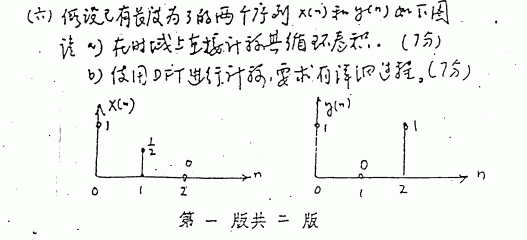 (六) 假设已有长度为3的两个序列 x(n) 和 y(n) 如下图
请 a) 在时域上直接计算其循环卷积. (7分)
b) 使用DFT进行计算, 要求有详细过程。(7分)
x(n) y(n)
1 1/2 0 n 1 0 1 n
0 1 2 0 1 2
第一版共二版